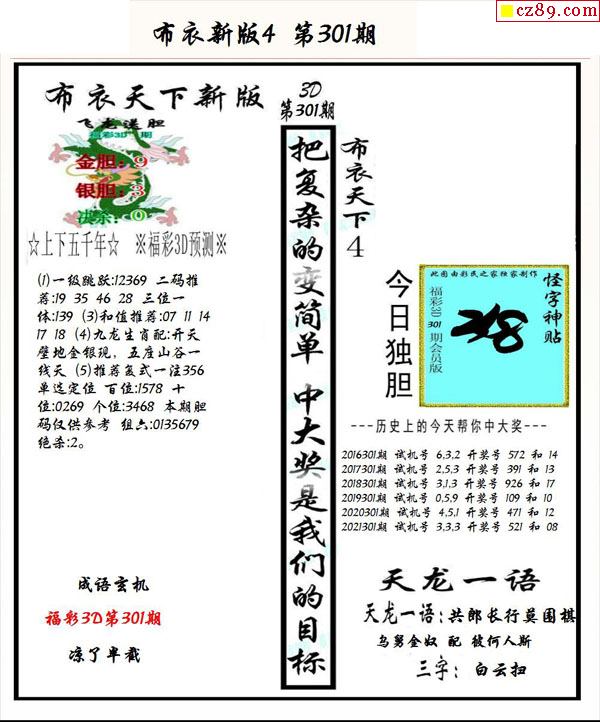 cz89.com
布衣新版4 第301期
布衣天下新版
飞龙送胆
福彩3D 期
金胆:9
银胆:3
决杀:0
☆上下五千年☆ ※福彩3D预测※
(1)一级跳跃:12369 二码推
荐:19 35 46 28 三位一
体:139 (3)和值推荐:07 11 14
17 18 (4)九龙生肖配:开天
壁地金银现，五度山谷一
线天 (5)推荐复式一注356
单选定位 百位:1578 十
位:0269 个位:3468 本期胆
码仅供参考 组六:0135679
绝杀:2。
成语玄机
福彩3D第301期
凉了半截
3D
第301期
把复杂的变简单 中大奖是我们的目标
布衣天下4
今日独胆
此图由彩民之家独家制作
福彩3D 301 期会员版
怪字神贴
---历史上的今天帮你中大奖---
2016301期 试机号 6,3,2 开奖号 572 和 14
2017301期 试机号 2,5,3 开奖号 391 和 13
2018301期 试机号 3,1,3 开奖号 926 和 17
2019301期 试机号 0,5,9 开奖号 109 和 10
2020301期 试机号 4,5,1 开奖号 471 和 12
2021301期 试机号 3,3,3 开奖号 521 和 08
天龙一语
天龙一语:共郎长行莫围棋
乌舅金奴 配 彼何人斯
三字: 白云扫